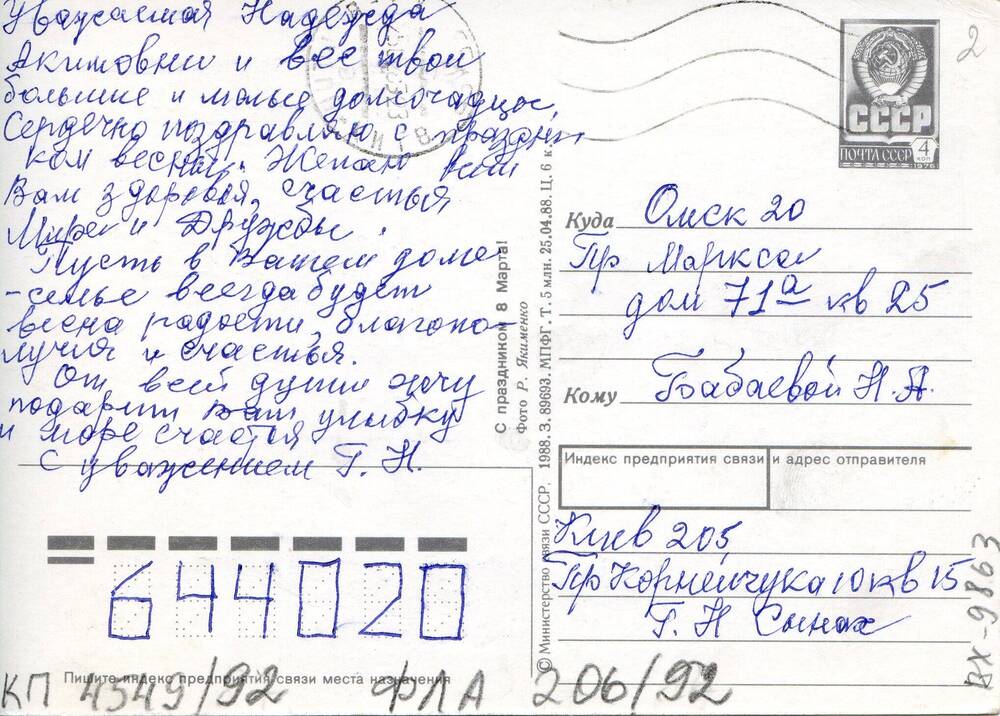 Уважаемая Надежда
Акимовни и все твои
большие и малые домочадцы,
Сердечно поздравляю с праздни
ком весны. Желаю всем
Вам здоровья, счастья
Мира и Дружбы.
Пусть в Вашем доме
-семье всегда будет
весна радости, благопо-
лучия и счастья.
От всей души хочу
подарить вам улыбку
и море счастья
С уважением Г. Н.
СССР
ПОЧТА СССР 4 коп
1976
2
Куда Омск 20
Пр Маркса
дом 71а кв 25
Кому Бабаевой Н. А.
Индекс предприятия связи и адрес отправителя
Киев 205
Пр Корнейчука 10 кв 15
Г. Н
С праздником 8 Марта!
Фото Р. Якименко
© Министерство связи СССР, 1988. З. 89693. МПФГ. Т. 5 млн. 25.04.88. Ц. 6 к.
644020
Пишите индекс предприятия связи места назначения
КП 4349/92 ФЛА 206/92
ВХ-9863